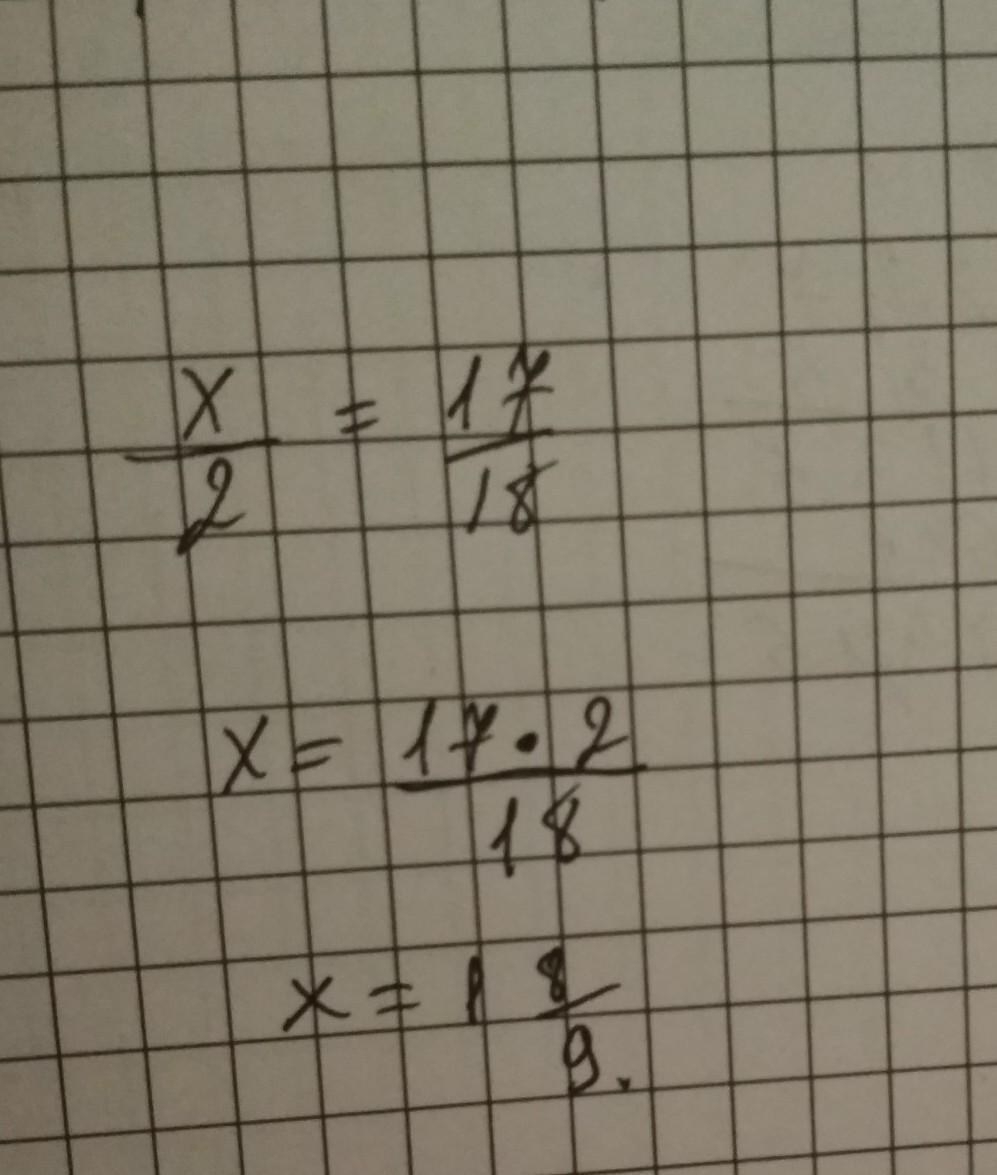 x/2 = 17/18
x = 17 · 2/18
x = 1 8/9.